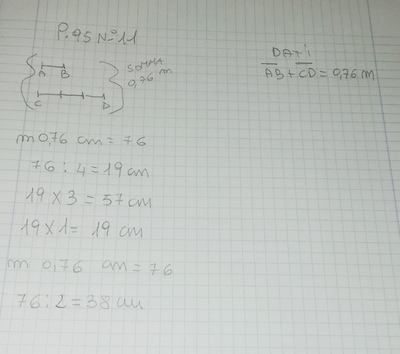 P. 95 N° 11
A B
C D
SOMMA
0,76 m
DATI
AB + CD = 0,76 m
m 0,76 cm = 76
76 : 4 = 19 cm
19 x 3 = 57 cm
19 x 1 = 19 cm
m 0,76 cm = 76
76 : 2 = 38